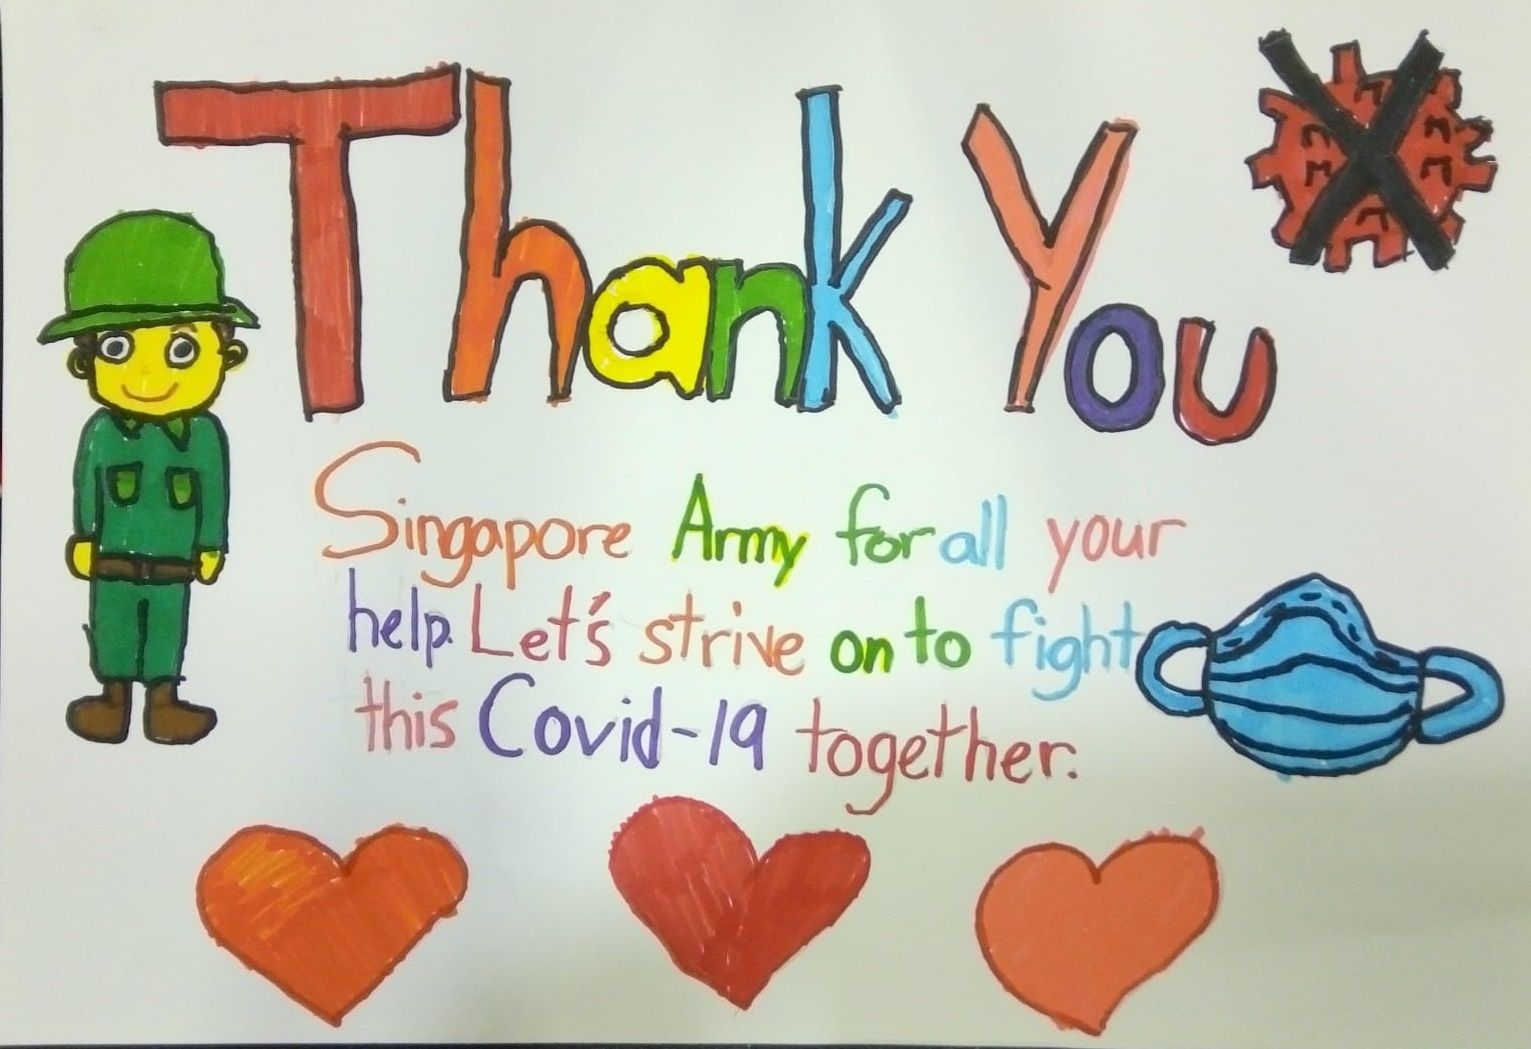 Thank You
Singapore Army for all your
help. Let's strive on to fight
this Covid-19 together.